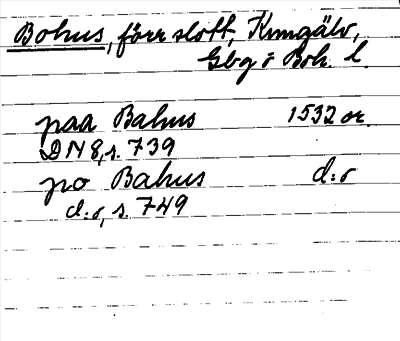 Bohus, förr slott, Kungälv,
Gbg o Boh. l.
paa Bahus 1532 or.
DN 8, s. 739
po Bahus d:o
d:o, s. 749